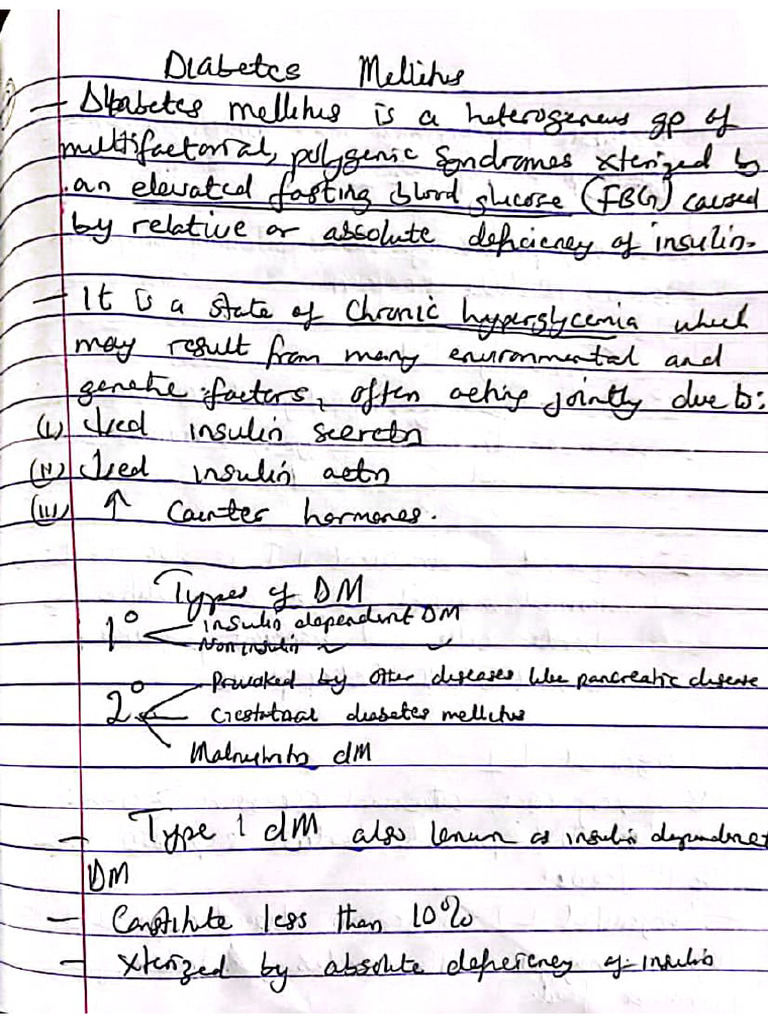 Diabetes Mellitus
- Diabetes mellitus is a heterogeneus gp of
multifactorial, polygenic syndromes xterized by
an elevated fasting blood glucose (FBG) caused
by relative or absolute deficiency of insulin.
- It is a state of chronic hyperglycemia which
may result from many environmental and
genetic factors, often acting jointly due to:
(i) ↓sed insulin secretn
(ii) ↓sed insulin actn
(iii) ↑ Counter hormones.
Types of DM
1° insulin dependent DM
Non insulin 〃 〃
Provoked by other diseases like pancreatic disease
2° Gestational diabetes mellitus
Malnutritn dM
- Type 1 dM also known as insulin dependent
DM
- Constitute less than 10%
- xterized by absolute deficiency of insulin